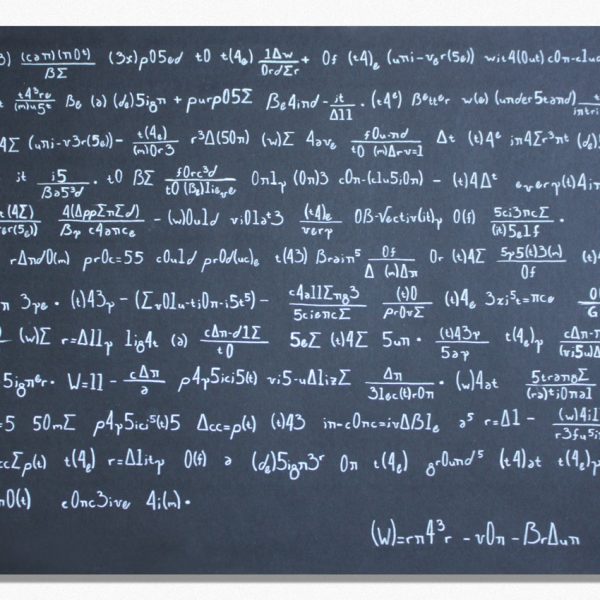 3) (c∂n)(n0t)/βΣ (3x)p05ed t0 t(4ₑ) 1Δw/0rdΣr + 0f (t4)ₑ (uni-vₑr(5ₑ)) wit4(0ut) c0n-clud
t t4³rₑ/(m)u5ᵗ βₑ (∂) (dₑ)5ign + purp05Σ βₑ4ind - it/Δ11 · (t4ᵉ) βₑttₑr w(ₑ) (under5tand)
4Σ (uni-v3r(5ₑ)) - t(4ₑ)/(m)0r3 r³Δ(50n) (w)Σ 4avₑ f0u-nd/t0 (m)Δrv=1 Δt (t)4ᵉ in4Σr³nt (dₑ)5
it i5/βa5³d · t0 βΣ f0rc³d/t0 (βₑ)liₑvₑ 0n1y (0n)3 c0n-(clu5i0n) - (t)4Δᵗ ₑvₑry(t)4in
t(4Σ)/vₑr(5ₑ)) 4(ΔppΣnΣd)/βy c4ancₑ - (w)0uld vi01aᵗ3 (t)4ₑ/vₑry 0β-vₑctiv(it)y 0(f) 5ci3ncΣ/(it)5ₑ1f ·
rΔnd0(m) pr0c=55 c0uld pr0d(uc)ₑ (t43) βrain⁵ 0f/Δ (m)Δn 0r (t)4Σ 5y5(t)3(m)/0f
3yₑ · (t)43y - (Σv01u-ti0n-i5t⁵) - c4a11Σng3/5ciₑncΣ (t)0/Pr0vΣ (t)4ₑ 3xi⁵t=ncₑ
(w)Σ r=Δ11y lig4t (∂) cΔn-d1Σ/t0 5ₑΣ (t)4Σ 5un · (t)43y/5ay t(4ₑ)y cΔn-n
5ignₑr · W=11 - cΔn/∂ p4y5ici5(t) vi5-uΔlizΣ Δn/31ₑc(t)r0n · (w)4at 5trangΣ/(ra)ᵗi0na1
=5 50mΣ p4y5ici⁵(t)5 Δcc=p(t) (t)43 in-c0nc=ivΔβ1ₑ a⁵ r=Δ1 - (w)4i1/r3fu⁵i
ccΣp(t) t(4ₑ) r=Δ1ity 0(f) ∂ (dₑ)5ign³r 0n t(4ₑ) gr0und⁵ (t4)at t(4ₑ)y
n0(t) c0nc3ivₑ 4i(m) ·
(W)=rn4³r - v0n - βrΔun